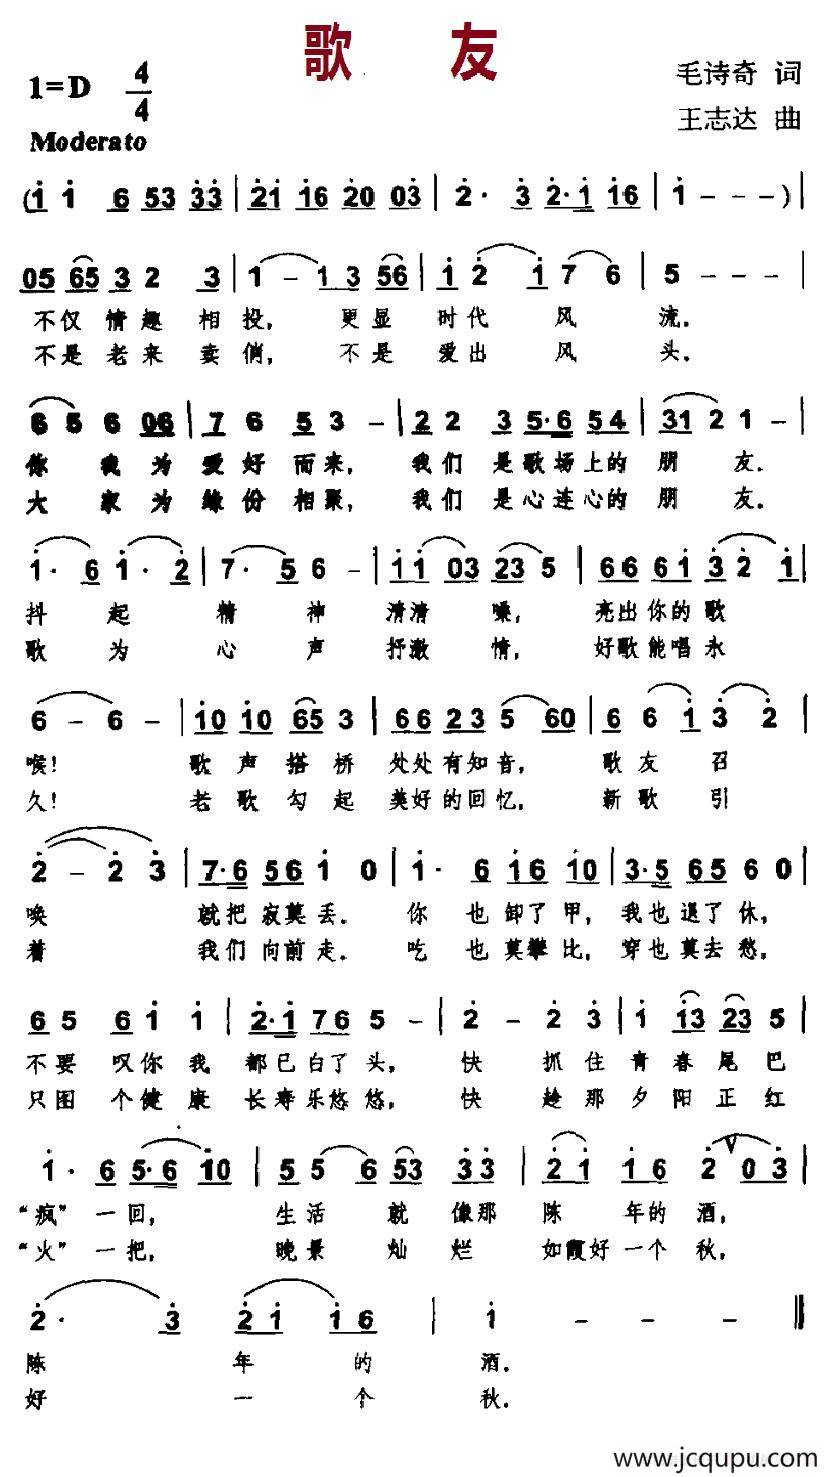 歌 友
1=D 4/4
毛诗奇 词
Moderato
王志达 曲
(1 1 6 53 33 | 21 16 20 03 | 2· 3 2·1 16 | 1 - - - ) |
05 65 3 2 3 | 1 - 1 3 56 | 1 2 1 7 6 | 5 - - - |
不仅 情趣 相 投, 更显 时代 风 流.
不是 老来 卖 俏, 不是 爱出 风 头.
6 5 6 06 | 7 6 5 3 - | 2 2 3 5·6 54 | 31 2 1 - |
你 我 为 爱好 而来, 我们 是歌场上的 朋 友.
大 家 为 缘份 相聚, 我们 是心连心的 朋 友.
1· 6 1· 2 | 7· 5 6 - | 11 03 23 5 | 66 61 3 2 1 |
抖 起 精 神 清清 嗓, 亮出你的歌
歌 为 心 声 抒激 情, 好歌能唱永
6 - 6 - | 10 10 65 3 | 66 23 5 60 | 6 6 1 3 2 |
喉! 歌 声 搭 桥 处处有知音, 歌友 召
久! 老 歌 勾 起 美好的回忆, 新歌 引
2 - 2 3 | 7·6 56 1 0 | 1· 6 16 10 | 3·5 65 6 0 |
唤 就把 寂莫 丢. 你 也 卸了 甲, 我也 退了 休,
着 我们 向前 走. 吃 也 莫攀 比, 穿也 莫去 愁,
6 5 6 1 1 | 2·1 76 5 - | 2 - 2 3 | 1 13 23 5 |
不要 叹你 我 都已白了 头, 快 抓住 青 春 尾 巴
只图 个健 康 长寿乐悠 悠, 快 趁那 夕 阳 正 红
1· 6 5·6 10 | 5 5 6 53 33 | 21 16 2 0 3 |
“疯” 一回, 生活 就 像那 陈 年的 酒,
“火” 一把, 晚景 灿 烂 如霞好一个 秋,
2· 3 | 21 16 | 1 - - - ||
陈 年 的 酒.
好 一 个 秋.
www.jcqupu.com